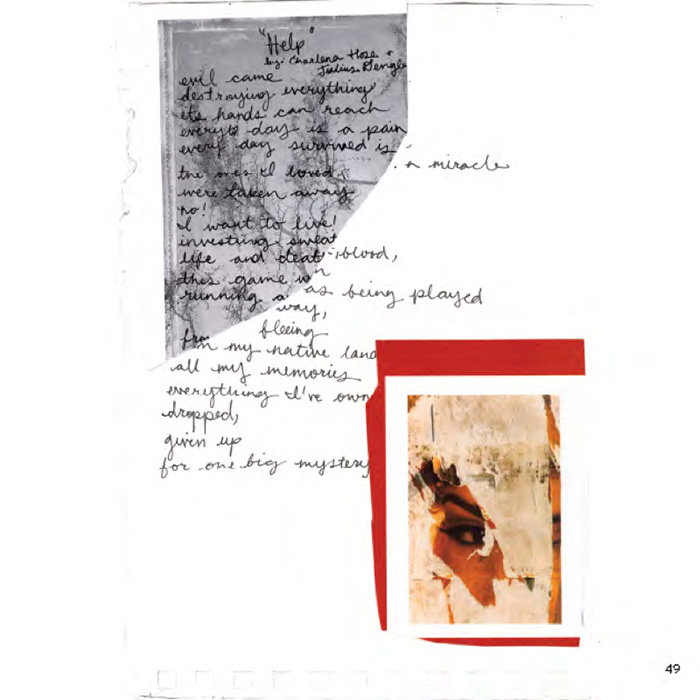 "Help"
by: Charlena Hose +
Julius Dengler
evil came
destroying everything
its hands can reach
every day is a pain
every day survived is a miracle
the ones I loved
were taken away
no!
I want to live!
investing sweat
life and death, blood,
this game was being played
running away,
fleeing
from my native land
all my memories
everything I've own
dropped,
given up
for one big mystery
49